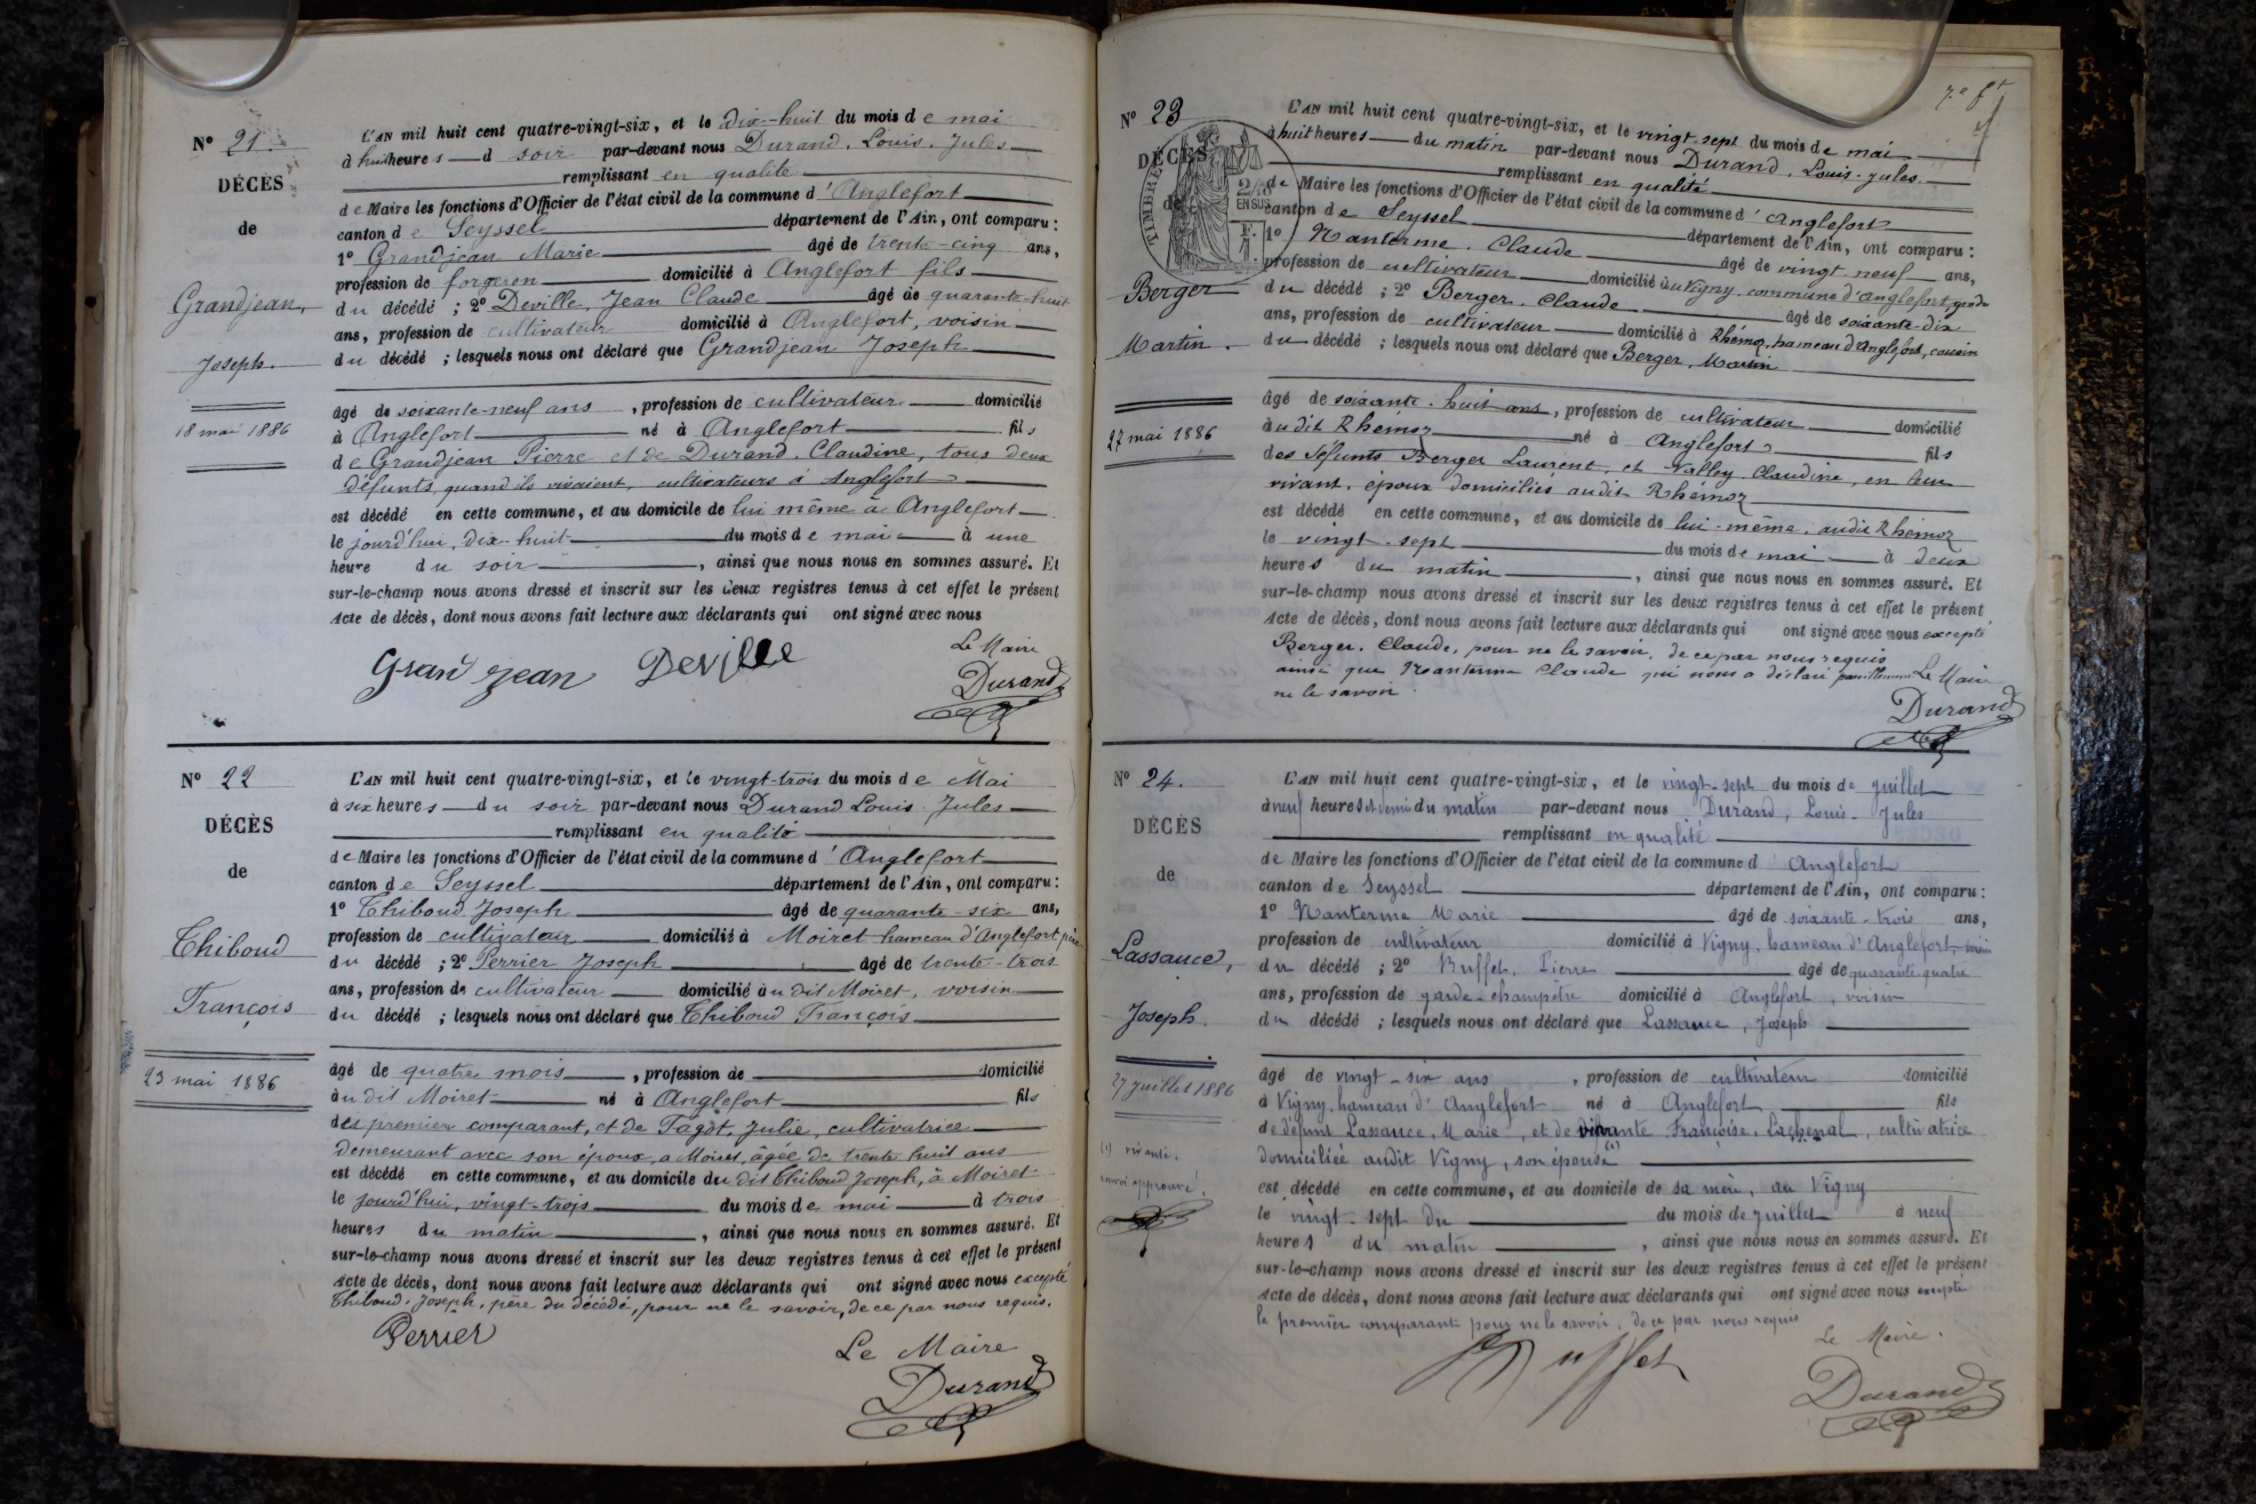 Nº 21.
DÉCÈS
de
Grandjean,
Joseph.
18 mai 1886
L'AN mil huit cent quatre-vingt-six, et le Dix-huit du mois de mai
à huit heures d soir par-devant nous Durand, Louis, Jules
remplissant en qualité
de Maire les fonctions d'Officier de l'état civil de la commune d'Anglefort
canton de Seyssel département de l'Ain, ont comparu :
1º Grandjean Marie âgé de trente-cinq ans,
profession de forgeron domicilié à Anglefort fils
du décédé ; 2º Deville, Jean Claude âgé de quarante-huit
ans, profession de cultivateur domicilié à Anglefort, voisin
du décédé ; lesquels nous ont déclaré que Grandjean Joseph
âgé de soixante-neuf ans, profession de cultivateur domicilié
à Anglefort né à Anglefort fils
de Grandjean Pierre et de Durand, Claudine, tous deux
défunts, quand ils vivaient, cultivateurs à Anglefort
est décédé en cette commune, et au domicile de lui même à Anglefort
le jourd'hui, dix-huit du mois de mai à une
heure du soir, ainsi que nous nous en sommes assuré. Et
sur-le-champ nous avons dressé et inscrit sur les deux registres tenus à cet effet le présent
Acte de décès, dont nous avons fait lecture aux déclarants qui ont signé avec nous
Le Maire
Grand jean Deville
Durand
Nº 22
DÉCÈS
de
Thiboud
François
23 mai 1886
L'AN mil huit cent quatre-vingt-six, et le vingt-trois du mois de Mai
à six heures du soir par-devant nous Durand Louis Jules
remplissant en qualité
de Maire les fonctions d'Officier de l'état civil de la commune d'Anglefort
canton de Seyssel département de l'Ain, ont comparu :
1º Thiboud Joseph âgé de quarante-six ans,
profession de cultivateur domicilié à Moiret hameau d'Anglefort père
du décédé ; 2º Perrier Joseph âgé de trente-trois
ans, profession de cultivateur domicilié au dit Moiret, voisin
du décédé ; lesquels nous ont déclaré que Thiboud François
âgé de quatre mois, profession de domicilié
au dit Moiret né à Anglefort fils
des premier comparant, et de Fagot, Julie, cultivatrice
demeurant avec son époux, a Moiret, âgée de trente huit ans
est décédé en cette commune, et au domicile du dit Thiboud Joseph, à Moiret
le jourd'hui, vingt-trois du mois de mai à trois
heures du matin, ainsi que nous nous en sommes assuré. Et
sur-le-champ nous avons dressé et inscrit sur les deux registres tenus à cet effet le présent
Acte de décès, dont nous avons fait lecture aux déclarants qui ont signé avec nous excepté
Thiboud, Joseph, père du décédé, pour ne le savoir, de ce par nous requis.
Perrier
Le Maire
Durand
7e ft
Nº 23
DÉCÈS
de
TIMBRE
2/10
EN SUS
F.
1
Berger
Martin.
27 mai 1886
L'AN mil huit cent quatre-vingt-six, et le vingt-sept du mois de mai
à huit heures du matin par-devant nous Durand, Louis-Jules
remplissant en qualité
de Maire les fonctions d'Officier de l'état civil de la commune d'Anglefort
canton de Seyssel département de l'Ain, ont comparu :
1º Nanterme, Claude âgé de vingt neuf ans,
profession de cultivateur domicilié au Vigny, commune d'Anglefort, gendre
du décédé ; 2º Berger, Claude âgé de soixante-dix
ans, profession de cultivateur domicilié à Rhémoz, hameau d'Anglefort, cousin
du décédé ; lesquels nous ont déclaré que Berger, Martin
âgé de soixante-huit ans, profession de cultivateur domicilié
audit Rhémoz né à Anglefort fils
des défunts Berger Laurent, et Valley Claudine, en leur
vivant, époux domiciliés audit Rhémoz
est décédé en cette commune, et au domicile de lui-même, audit Rhémoz
le vingt-sept du mois de mai à deux
heures du matin, ainsi que nous nous en sommes assuré. Et
sur-le-champ nous avons dressé et inscrit sur les deux registres tenus à cet effet le présent
Acte de décès, dont nous avons fait lecture aux déclarants qui ont signé avec nous excepté
Berger, Claude, pour ne le savoir, de ce par nous requis
ainsi que Nanterme Claude qui nous a déclaré pareillement Le Maire
ne le savoir.
Durand
Nº 24.
DÉCÈS
de
Lassauce,
Joseph.
27 juillet 1886
(1) vivante.
renvoi approuvé.
L'AN mil huit cent quatre-vingt-six, et le vingt-sept du mois de juillet
à neuf heures et demi du matin par-devant nous Durand, Louis-Jules
remplissant en qualité
de Maire les fonctions d'Officier de l'état civil de la commune d'Anglefort
canton de Seyssel département de l'Ain, ont comparu :
1º Nanterme Marie âgé de soixante-trois ans,
profession de cultivateur domicilié à Vigny, hameau d'Anglefort, voisin
du décédé ; 2º Buffet, Pierre âgé de quarante quatre
ans, profession de garde-champêtre domicilié à Anglefort, voisin
du décédé ; lesquels nous ont déclaré que Lassauce, Joseph
âgé de vingt-six ans, profession de cultivateur domicilié
à Vigny, hameau d'Anglefort né à Anglefort fils
de défunt Lassauce, Marie, et de vivante Françoise, Lachenal, cultivatrice
domiciliée audit Vigny, son épouse (1)
est décédé en cette commune, et au domicile de sa mère, au Vigny
le vingt-sept du du mois de juillet à neuf
heures du matin, ainsi que nous nous en sommes assuré. Et
sur-le-champ nous avons dressé et inscrit sur les deux registres tenus à cet effet le présent
Acte de décès, dont nous avons fait lecture aux déclarants qui ont signé avec nous excepté
le premier comparant pour ne le savoir, de ce par nous requis
Le Maire.
Buffet
Durand